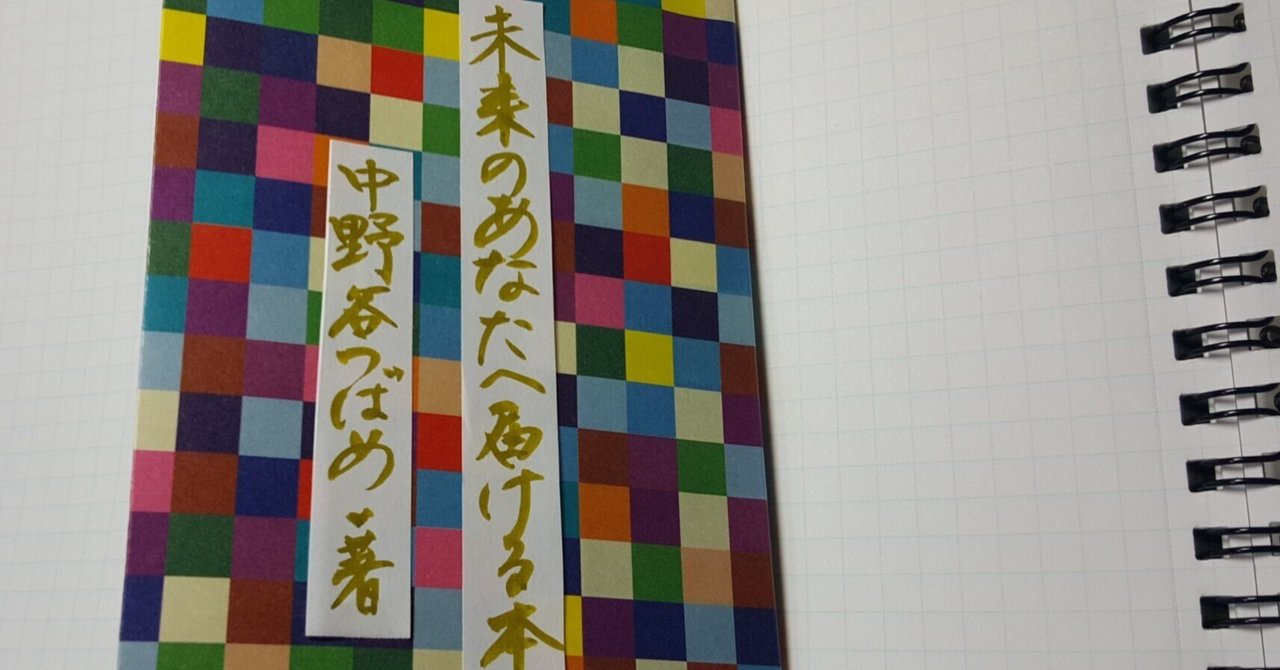 未来のあなたへ届ける本
中野谷つばめ・著